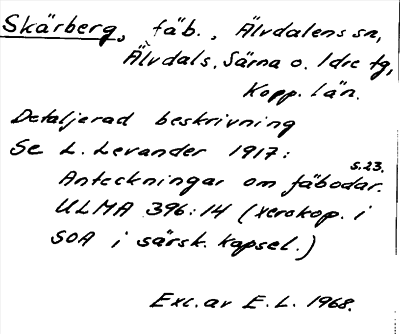 Skärberg, fäb., Älvdalens sn,
Älvdals, Särna o. Idre tg,
Kopp. län.
Detaljerad beskrivning
Se L. Levander 1917:
s.23.
Anteckningar om fäbodar.
ULMA 396:14 (xerokop. i
SOA i särsk. kapsel.)
Exc. av E. L. 1968.